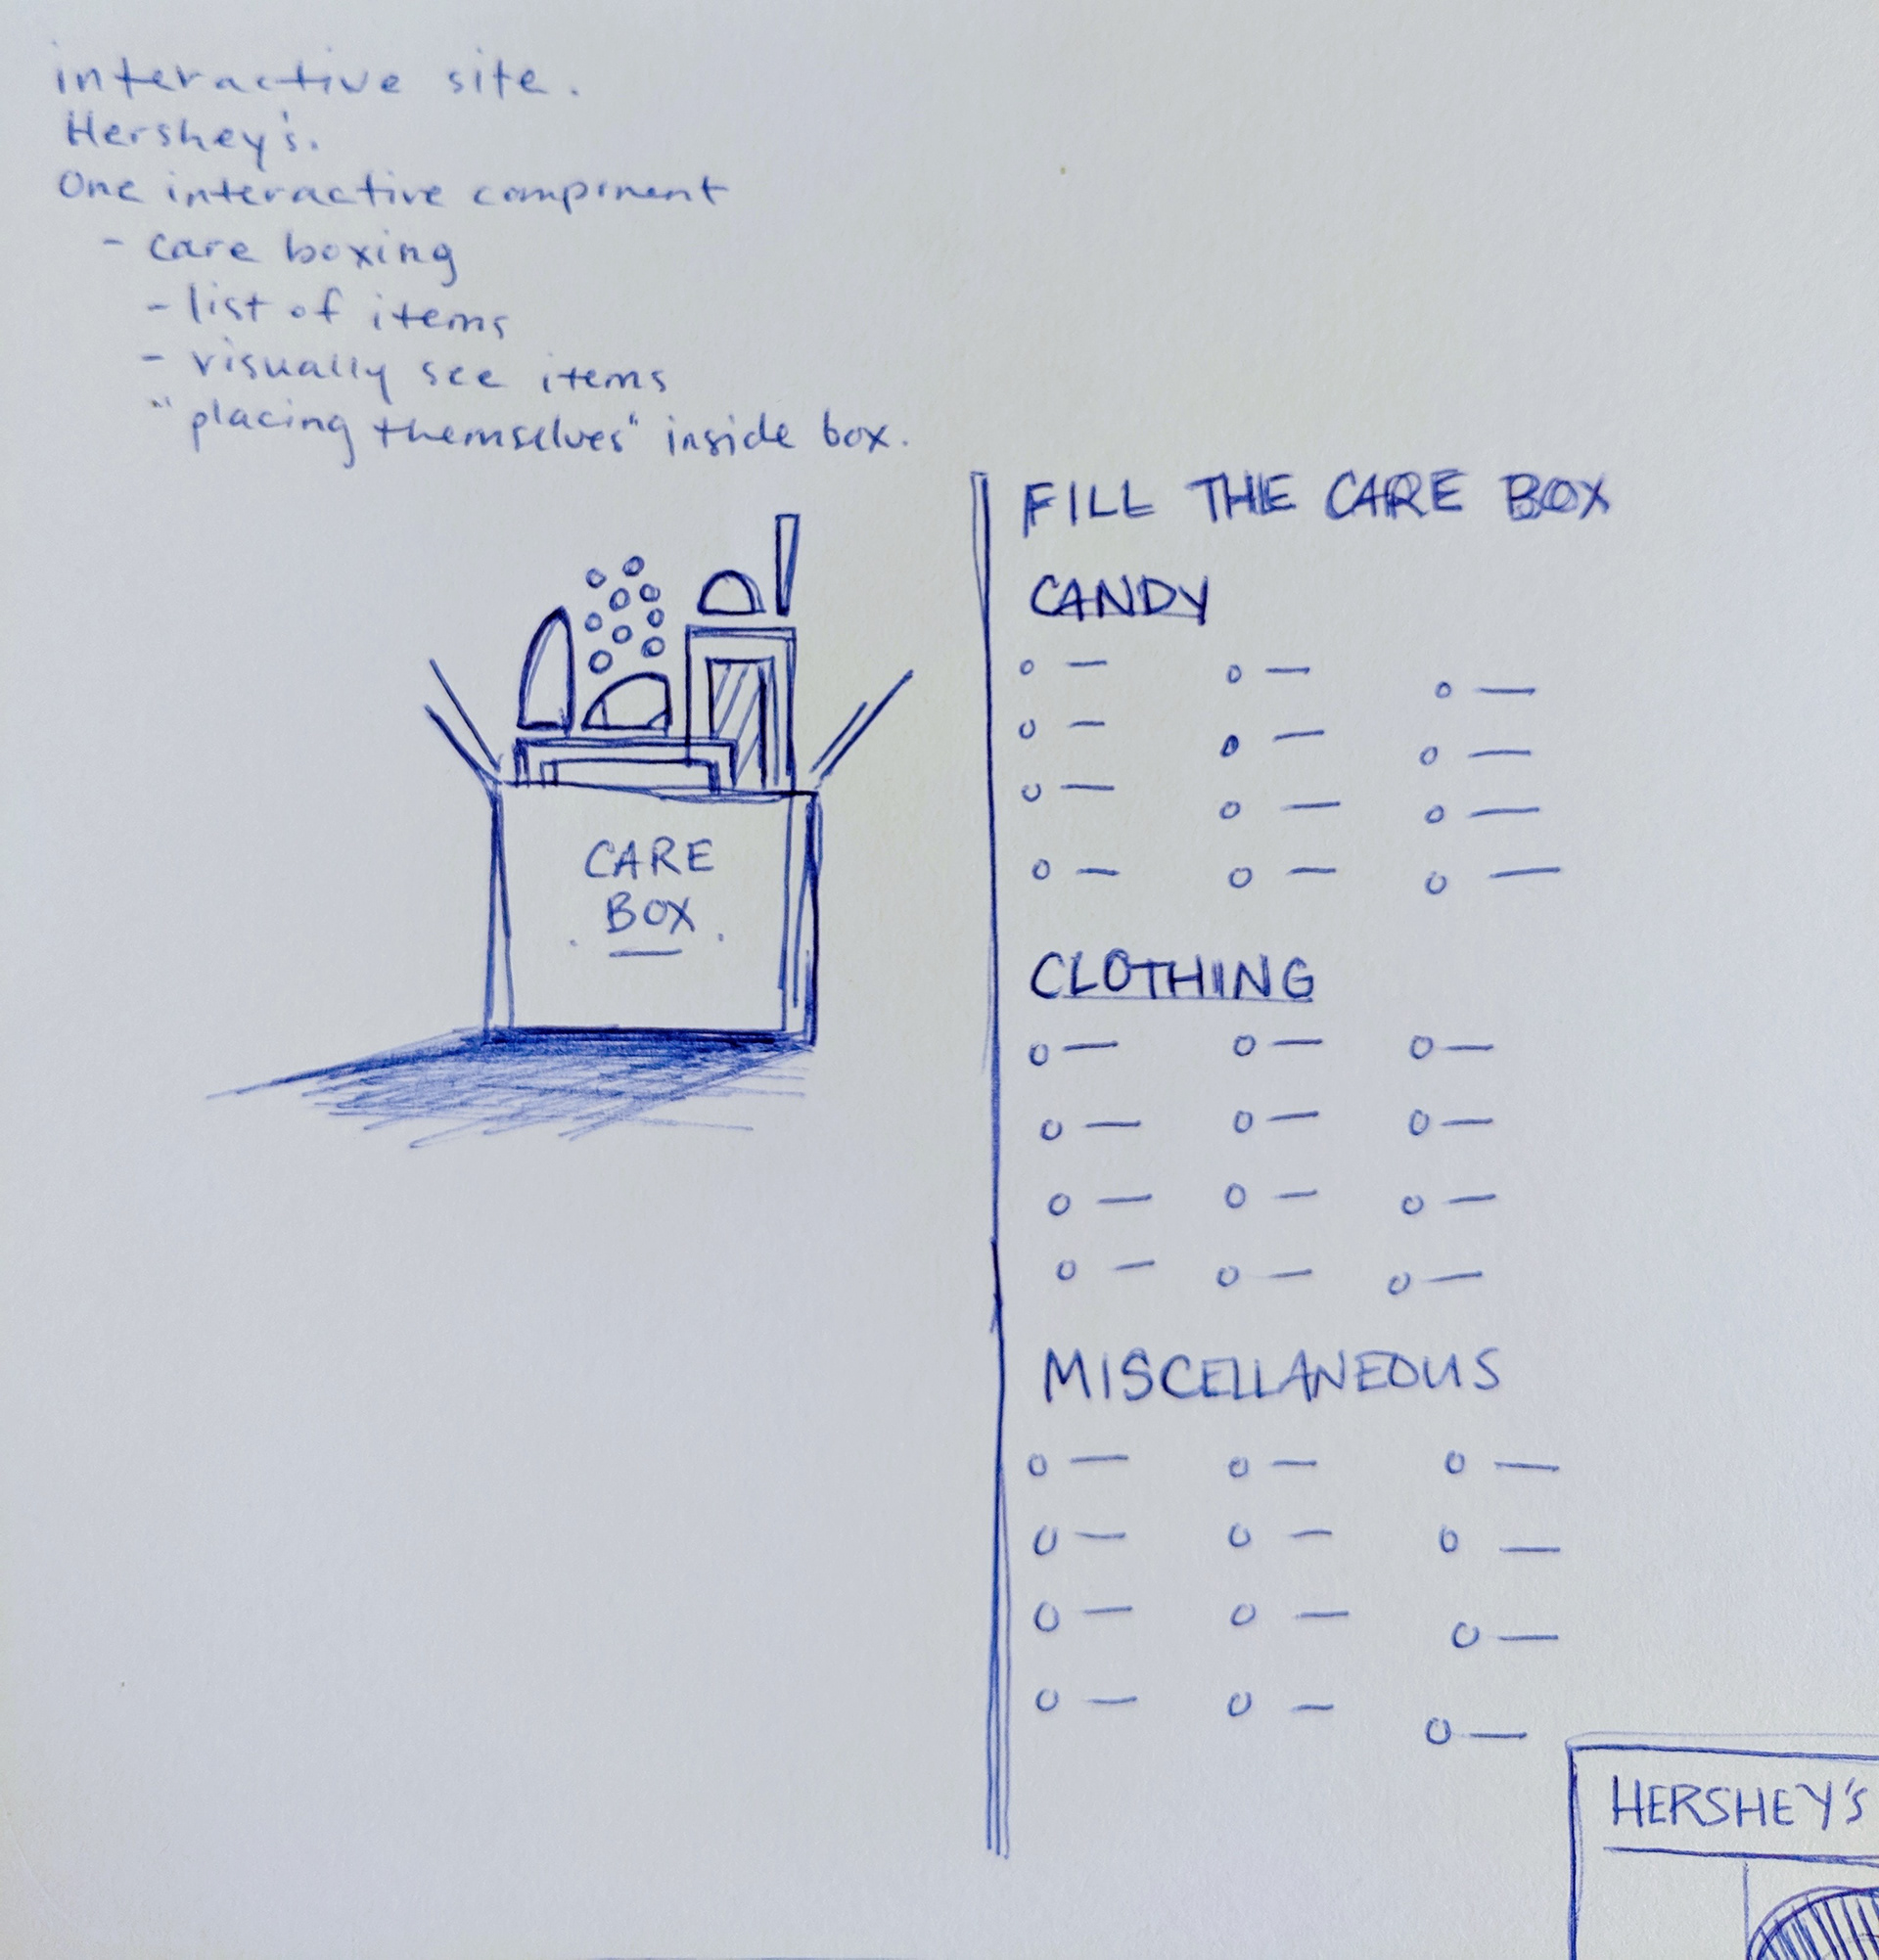 interactive site.
Hershey's.
One interactive component
- care boxing
- list of items
- visually see items
"placing themselves" inside box.
CARE
BOX
FILL THE CARE BOX
CANDY
CLOTHING
MISCELLANEOUS
HERSHEY'S